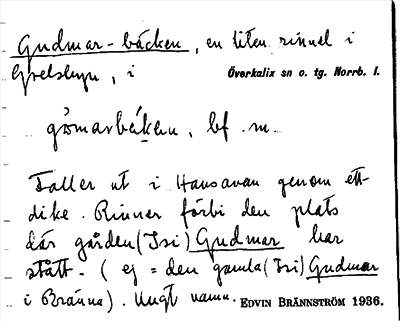 Gudmar-bäcken, en liten rinnel i
Grelsbyn, i Överkalix sn o. tg. Norrb. l.
gömarbäken, bf. m.
Faller ut i Hansavan genom ett
dike. Rinner förbi den plats
där gården (Isi) Gudmar har
stått. (ej = den gamla (Isi) Gudmar
i Bränna). Ungt namn. EDVIN BRÄNNSTRÖM 1936.